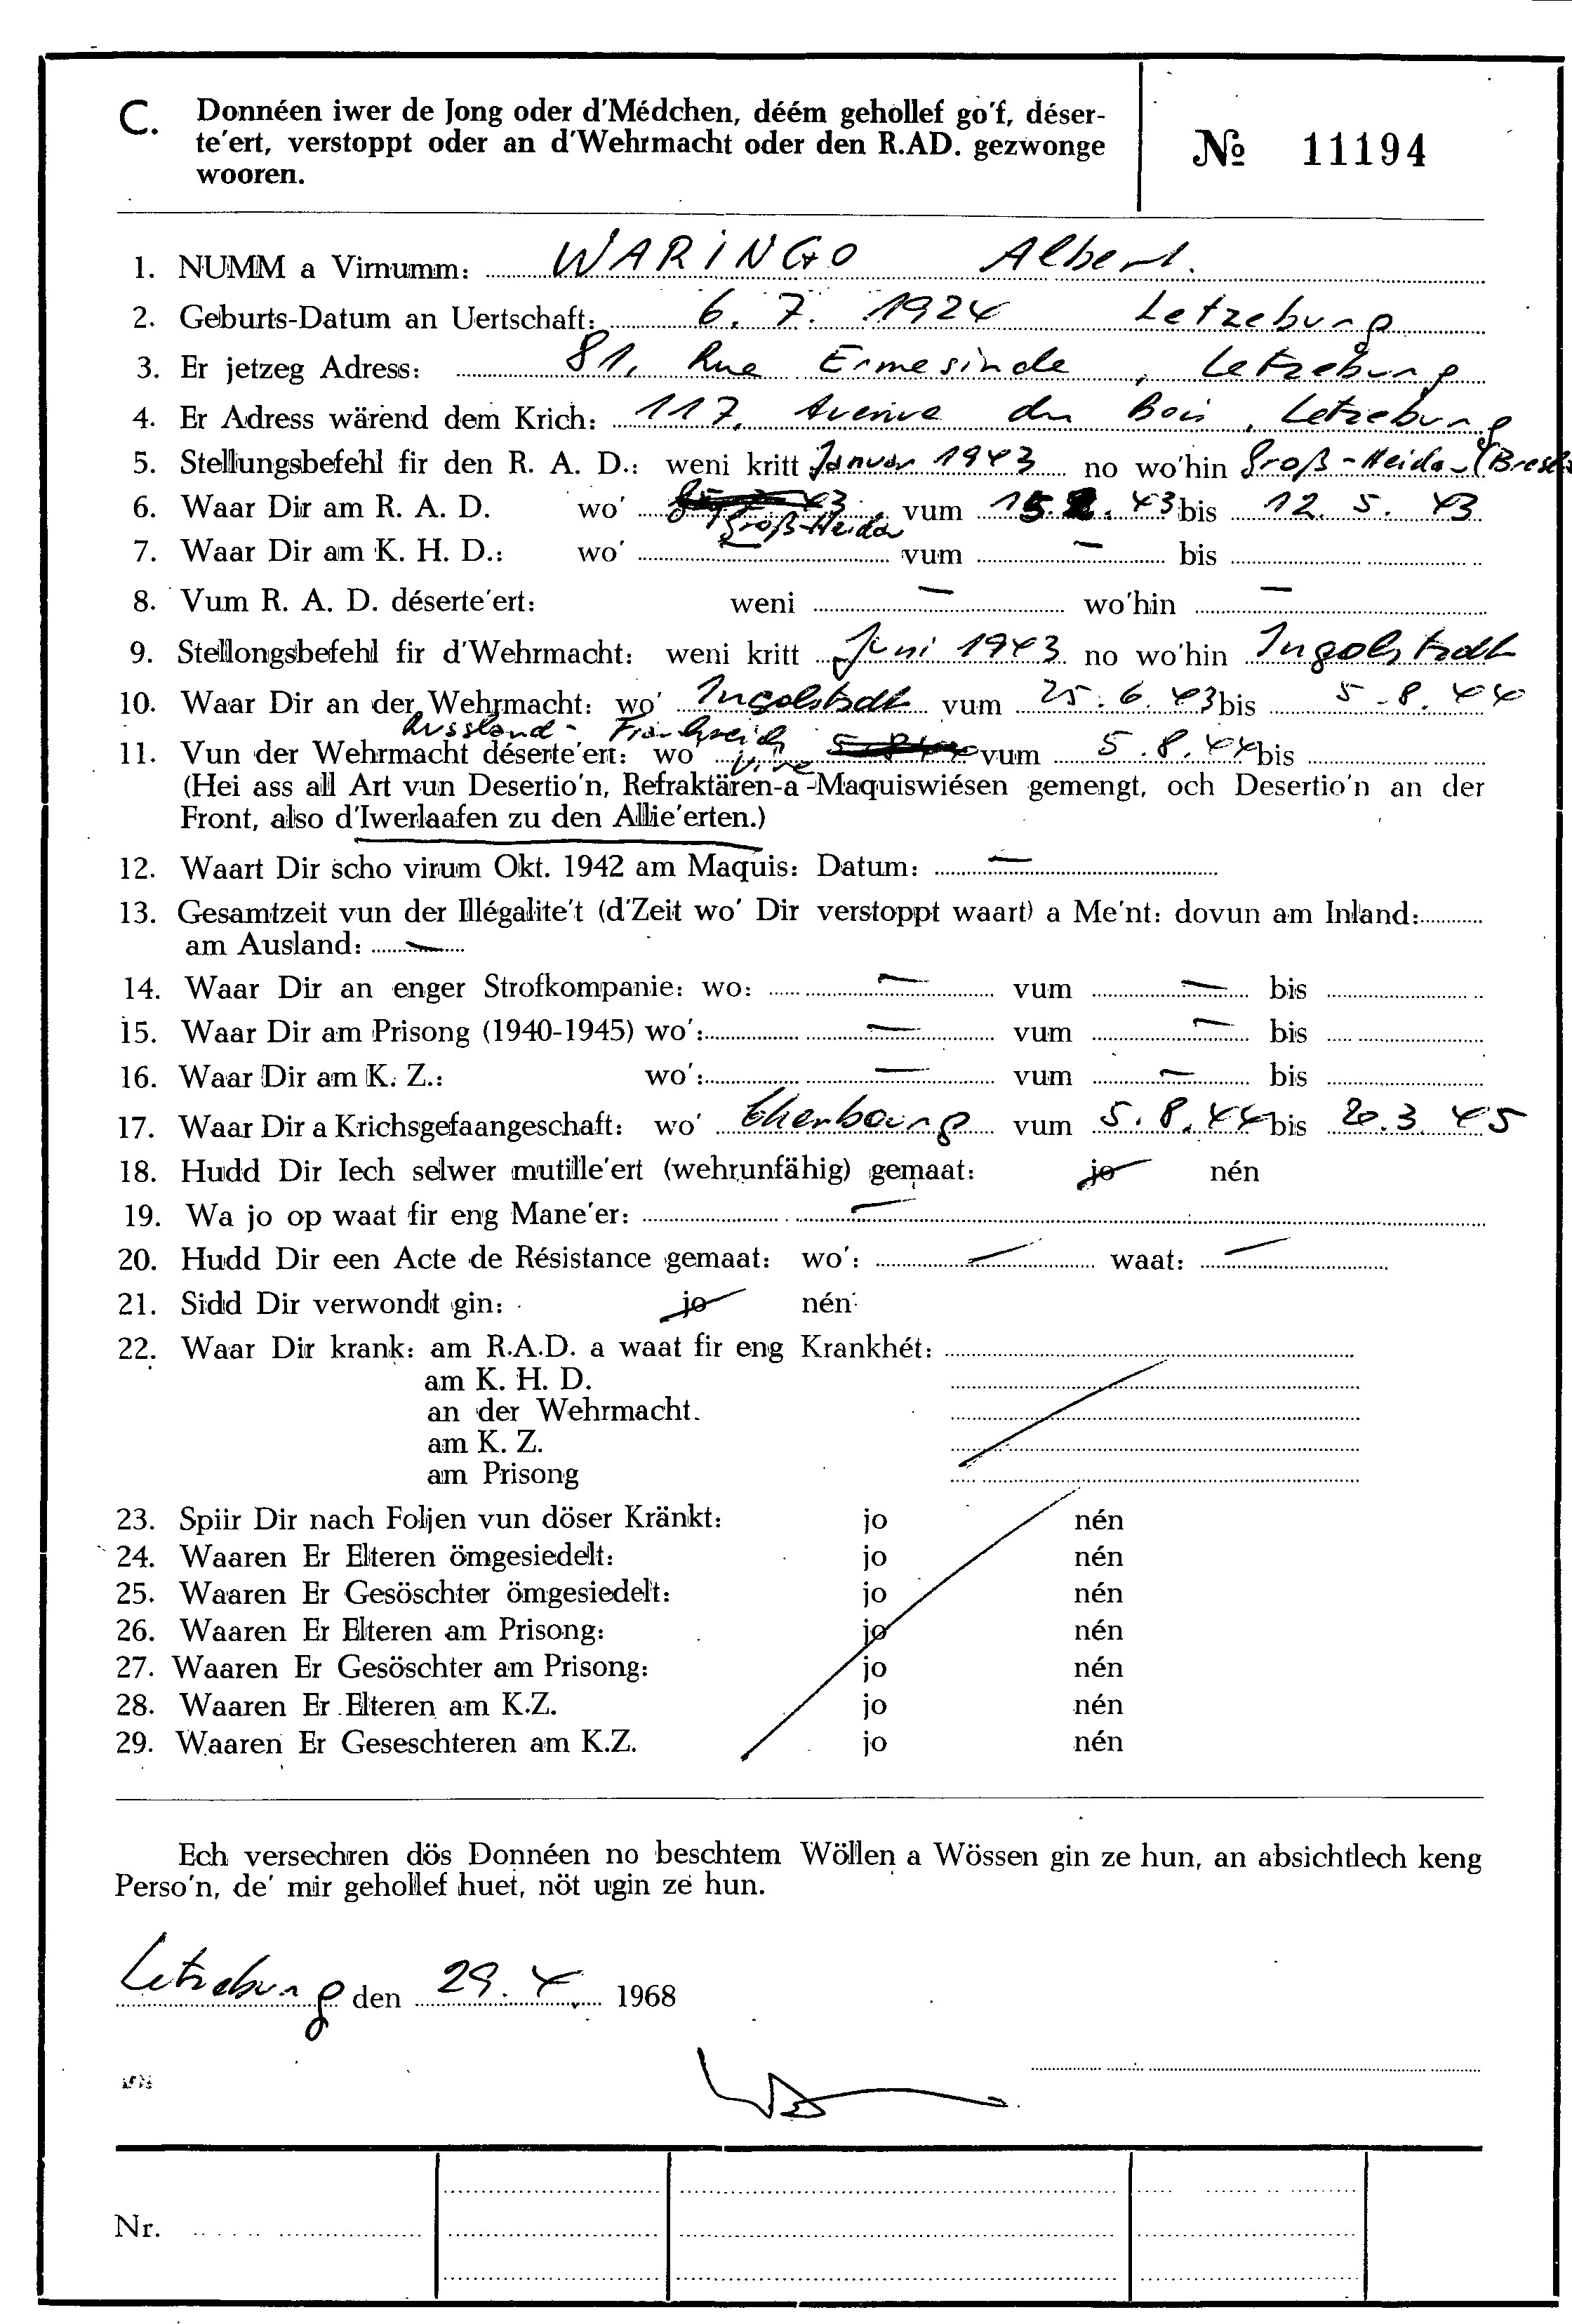 C. Donnéen iwer de Jong oder d'Médchen, déém gehollef go'f, déser-
te'ert, verstoppt oder an d'Wehrmacht oder den R.AD. gezwonge
wooren.
№ 11194
1. NUMM a Virnumm: WARINGO Albert.
2. Geburts-Datum an Uertschaft: 6. 7. 1924 Letzeburg
3. Er jetzeg Adress: 81, Rue Ermesinde, Letzeburg
4. Er Adress wärend dem Krich: 117, Avenue du Bois, Letzeburg
5. Stellungsbefehl fir den R. A. D.: weni kritt Januar 1943 no wo'hin Groß-Heida-(Bresl
6. Waar Dir am R. A. D. wo' Groß-Heida vum 15. 2. 43 bis 12. 5. 43
7. Waar Dir am K. H. D.: wo' — vum — bis
8. Vum R. A. D. déserte'ert: weni — wo'hin —
9. Stellongsbefehl fir d'Wehrmacht: weni kritt Juni 1943 no wo'hin Ingolstadt
10. Waar Dir an der Wehrmacht: wo' Ingolstadt vum 25. 6. 43 bis 5-8. 44
Russland - Frankreich
11. Vun der Wehrmacht déserte'ert: wo' Vire vum 5. 8. 44 bis
(Hei ass all Art vun Desertio'n, Refraktären-a -Maquiswiésen gemengt, och Desertio'n an der
Front, also d'Iwerlaafen zu den Allie'erten.)
12. Waart Dir scho virum Okt. 1942 am Maquis: Datum: —
13. Gesamtzeit vun der Illégalite't (d'Zeit wo' Dir verstoppt waart) a Me'nt: dovun am Inland:
am Ausland: —
14. Waar Dir an enger Strofkompanie: wo: — vum — bis
15. Waar Dir am Prisong (1940-1945) wo': — vum — bis
16. Waar Dir am K. Z.: wo': — vum — bis
17. Waar Dir a Krichsgefaangeschaft: wo' Cherbourg vum 5. 8. 44 bis 20. 3. 45
18. Hudd Dir Iech selwer mutille'ert (wehrunfähig) gemaat: jo nén
19. Wa jo op waat fir eng Mane'er: —
20. Hudd Dir een Acte de Résistance gemaat: wo': — waat: —
21. Sidd Dir verwondt gin: jo nén
22. Waar Dir krank: am R.A.D. a waat fir eng Krankhét:
am K. H. D.
an der Wehrmacht.
am K. Z.
am Prisong
23. Spiir Dir nach Foljen vun döser Kränkt: jo nén
24. Waaren Er Elteren ömgesiedelt: jo nén
25. Waaren Er Gesöschter ömgesiedelt: jo nén
26. Waaren Er Elteren am Prisong: jo nén
27. Waaren Er Gesöschter am Prisong: jo nén
28. Waaren Er Elteren am K.Z. jo nén
29. Waaren Er Geseschteren am K.Z. jo nén
Ech versechren dös Donnéen no beschtem Wöllen a Wössen gin ze hun, an absichtlech keng
Perso'n, de' mir gehollef huet, nöt ugin ze hun.
Letzeburg den 29. 4. 1968
Nr.